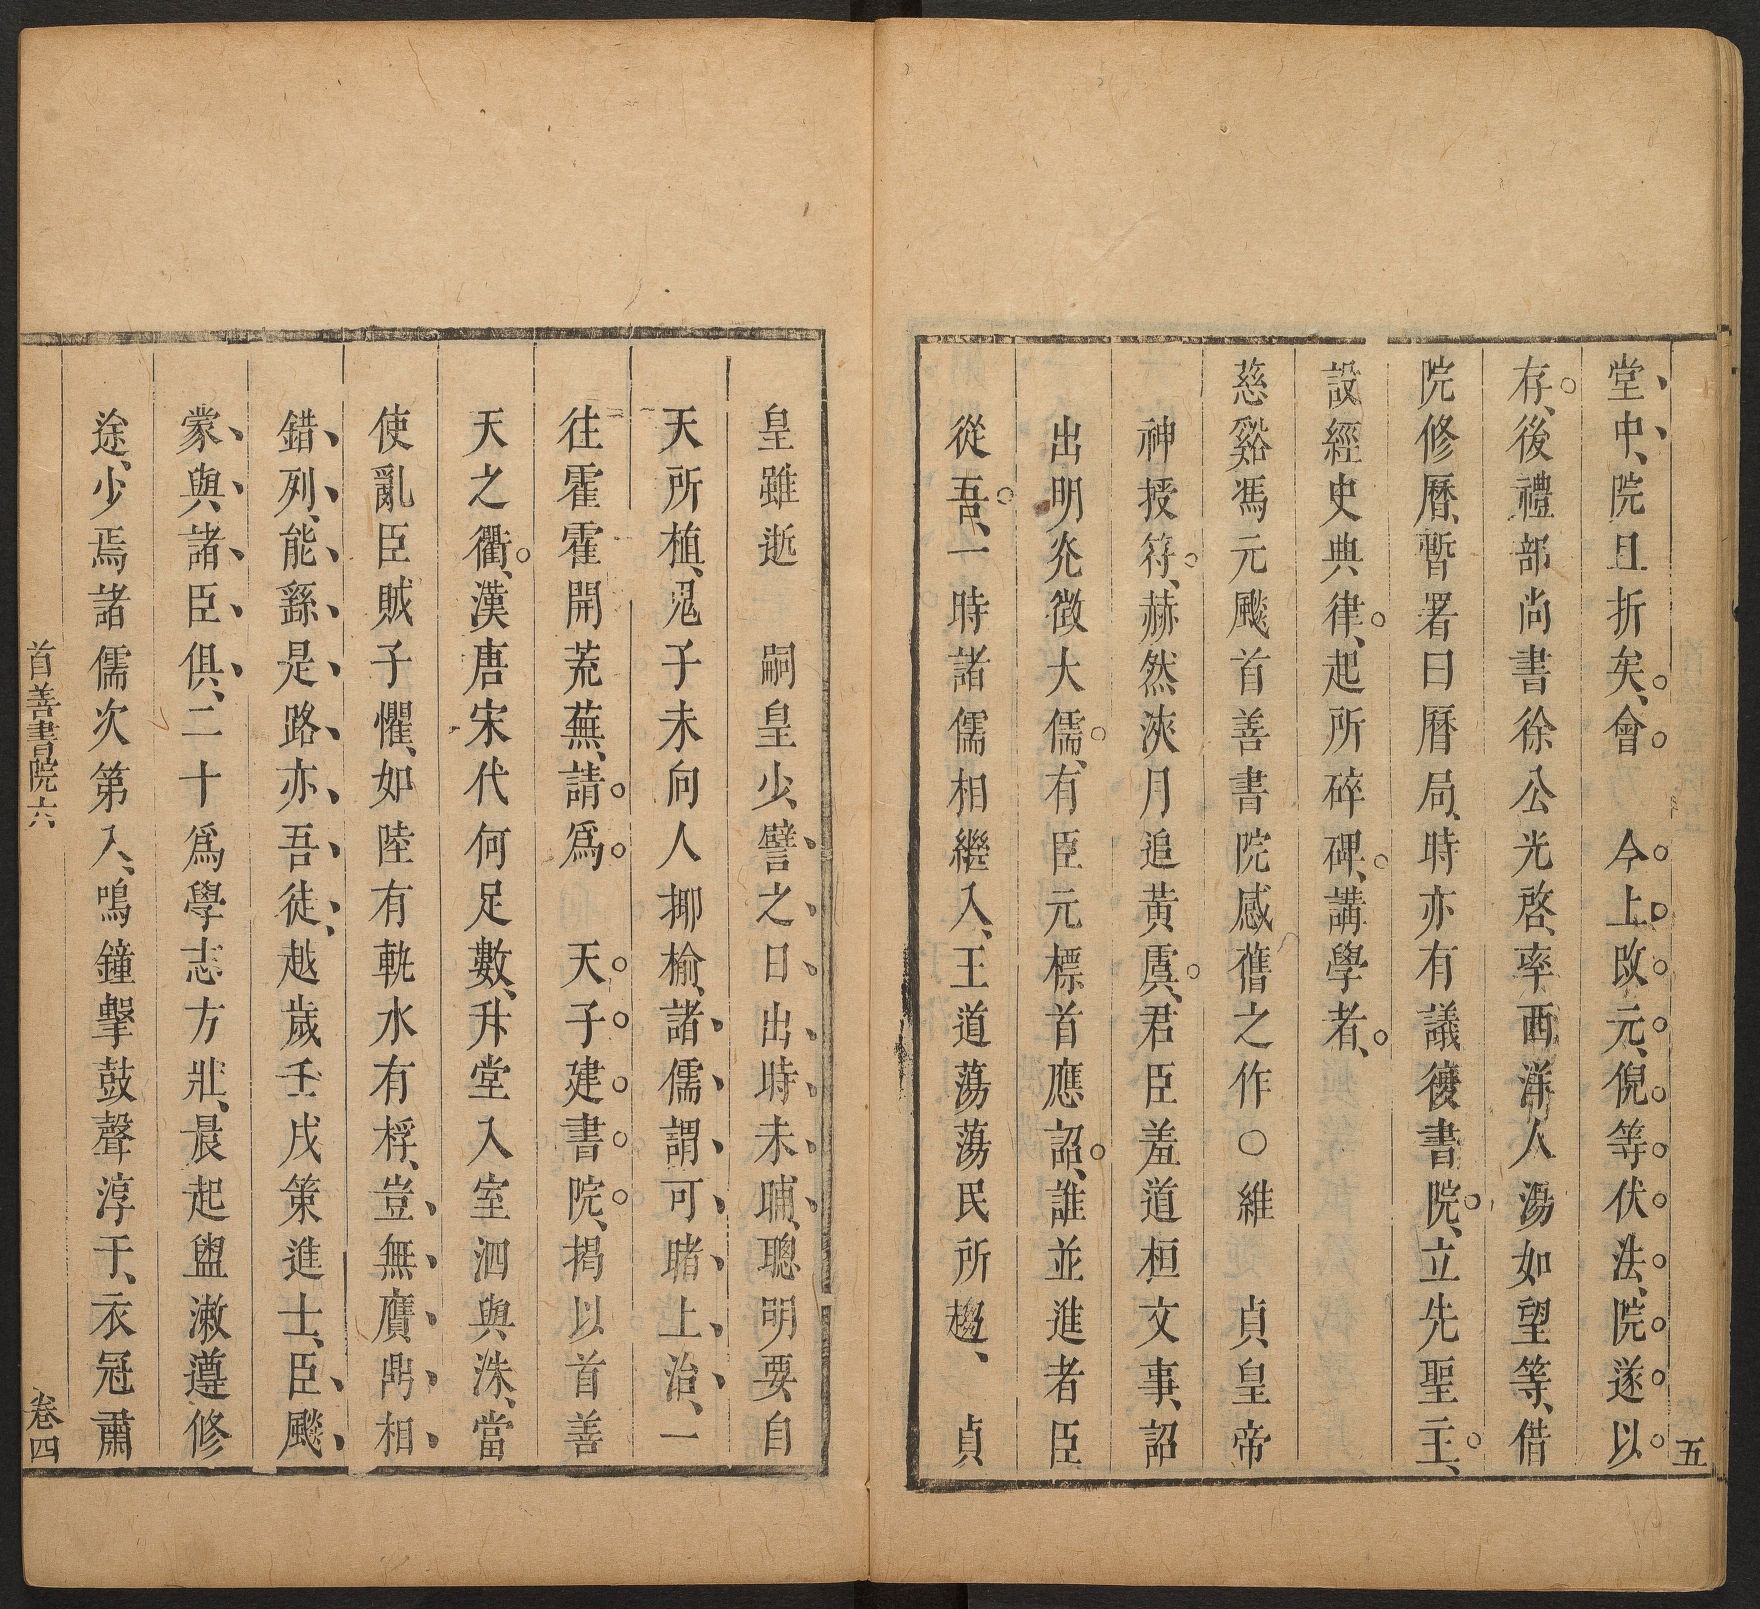 堂中、院且折矣、會　今上改元、倪等伏法、院遂以
存、後禮部尚書徐公光啓、率西洋人湯如望等、借
院修曆、暫署曰曆局、時亦有議復書院、立先聖主、
設經史典律、起所碎碑、講學者、
慈谿馮元颷首善書院感舊之作○維　貞皇帝
神授符、赫然浹月追黃虞、君臣羞道桓文事、詔
出明光徵大儒、有臣元標首應詔、誰並進者臣
從吾、一時諸儒相繼入、王道蕩蕩民所趨、　貞
五
皇雖逝　嗣皇少、譬之日出時未晡、聰明要自
天所植、鬼子未向人揶揄、諸儒謂可睹上治、一
往霍霍開荒蕪、請爲　天子建書院、揭以首善
天之衢、漢唐宋代何足數、升堂入室泗與洙、當
使亂臣賊子懼、如陸有軏水有桴、豈無贋鼎相
錯列、能繇是路亦吾徒、越歲壬戌策進士、臣颷
蒙與諸臣俱、二十爲學志方壯、晨起盥漱遵修
途、少焉諸儒次第入、鳴鐘擊鼓聲淳于、衣冠肅
首善書院六
卷四